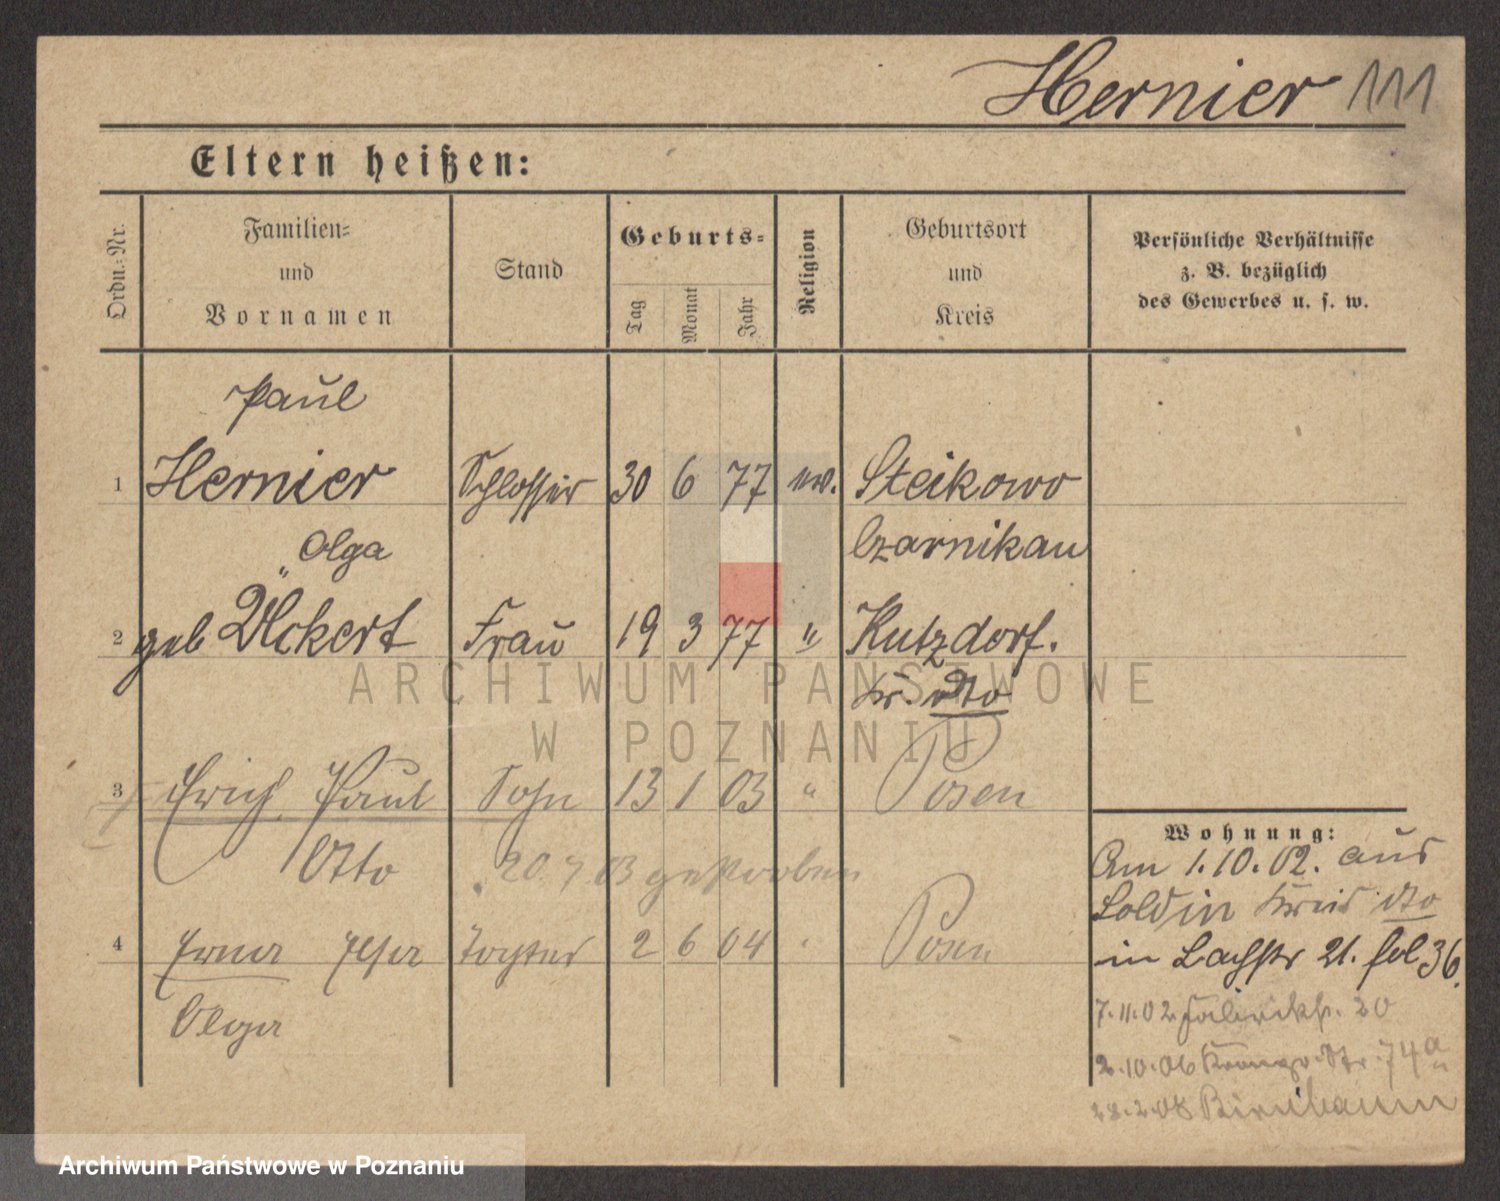 Hernier 111
Eltern heißen:
Ordn.=Nr.
Familien=
und
Vornamen
Stand
Geburts=
Tag
Monat
Jahr
Religion
Geburtsort
und
Kreis
Persönliche Verhältnisse
z. B. bezüglich
des Gewerbes u. s. w.
Paul
1 Hernier Schlosser 30 6 77 ev. Steikowo
Olga Czarnikau
2 geb Ückert Frau 19 3 77 " Kutzdorf.
Kr. dto
3 Erich Paul Sohn 13 1 03 " Posen
Otto 20 7 03 gestorben
4 Erna Elsa Tochter 2 6 04 Posen
Olga
Wohnung:
Am 1.10.02. aus
Soldin Kreis dto
in Bachstr 21. fol 36.
7.11.02 Fabrikstr. 20
2.10.06 74a
2.08 Birnbaum
ARCHIWUM PAŃSTWOWE
W POZNANIU
Archiwum Państwowe w Poznaniu